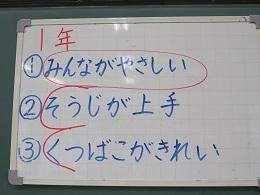 1年
①みんながやさしい
②そうじが上手
③くつばこがきれい